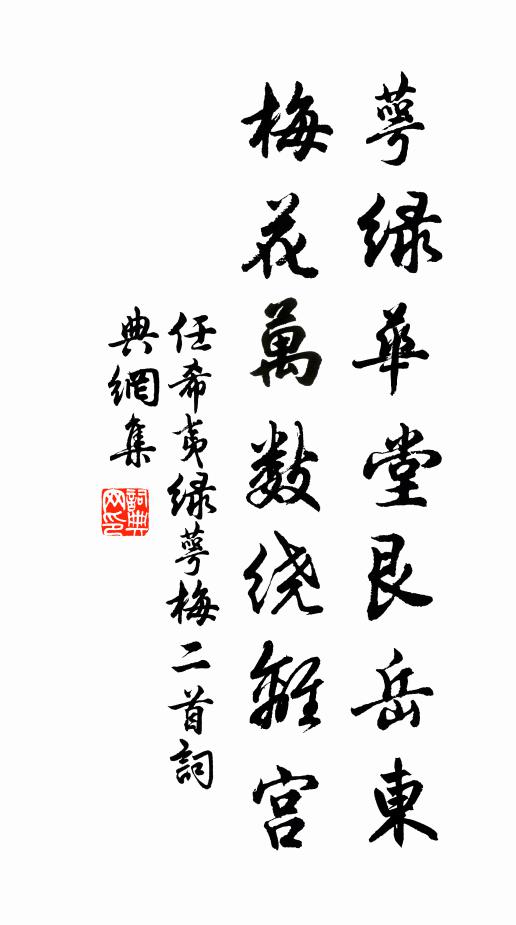 萼綠華堂艮岳東
梅花萬數绕離宫
任希夷緑萼梅二首詞
典網集
詞典網印